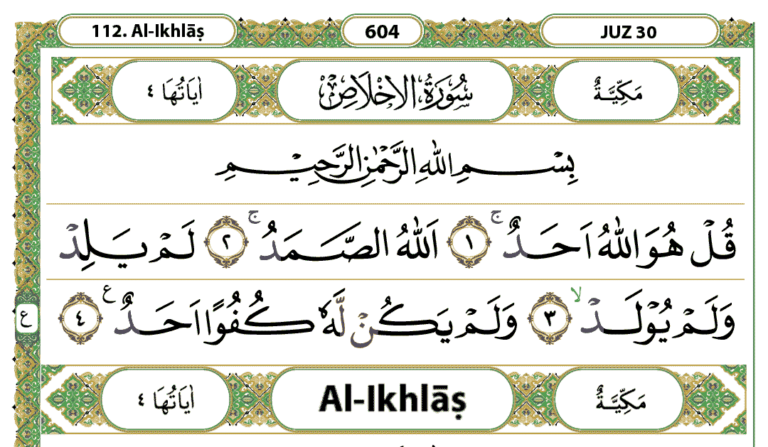 112. Al-Ikhlāṣ 604 JUZ 30
مَكِّيَّةٌ سُوْرَةُ الْاِخْلَاصِ اٰيَاتُهَا ٤
بِسْمِ اللّٰهِ الرَّحْمٰنِ الرَّحِيْمِ
قُلْ هُوَ اللّٰهُ اَحَدٌۚ ١ اَللّٰهُ الصَّمَدُۚ ٢ لَمْ يَلِدْ
وَلَمْ يُوْلَدْۙ ٣ وَلَمْ يَكُنْ لَّهٗ كُفُوًا اَحَدٌ ࣖ ٤
ع
مَكِّيَّةٌ Al-Ikhlāṣ اٰيَاتُهَا ٤